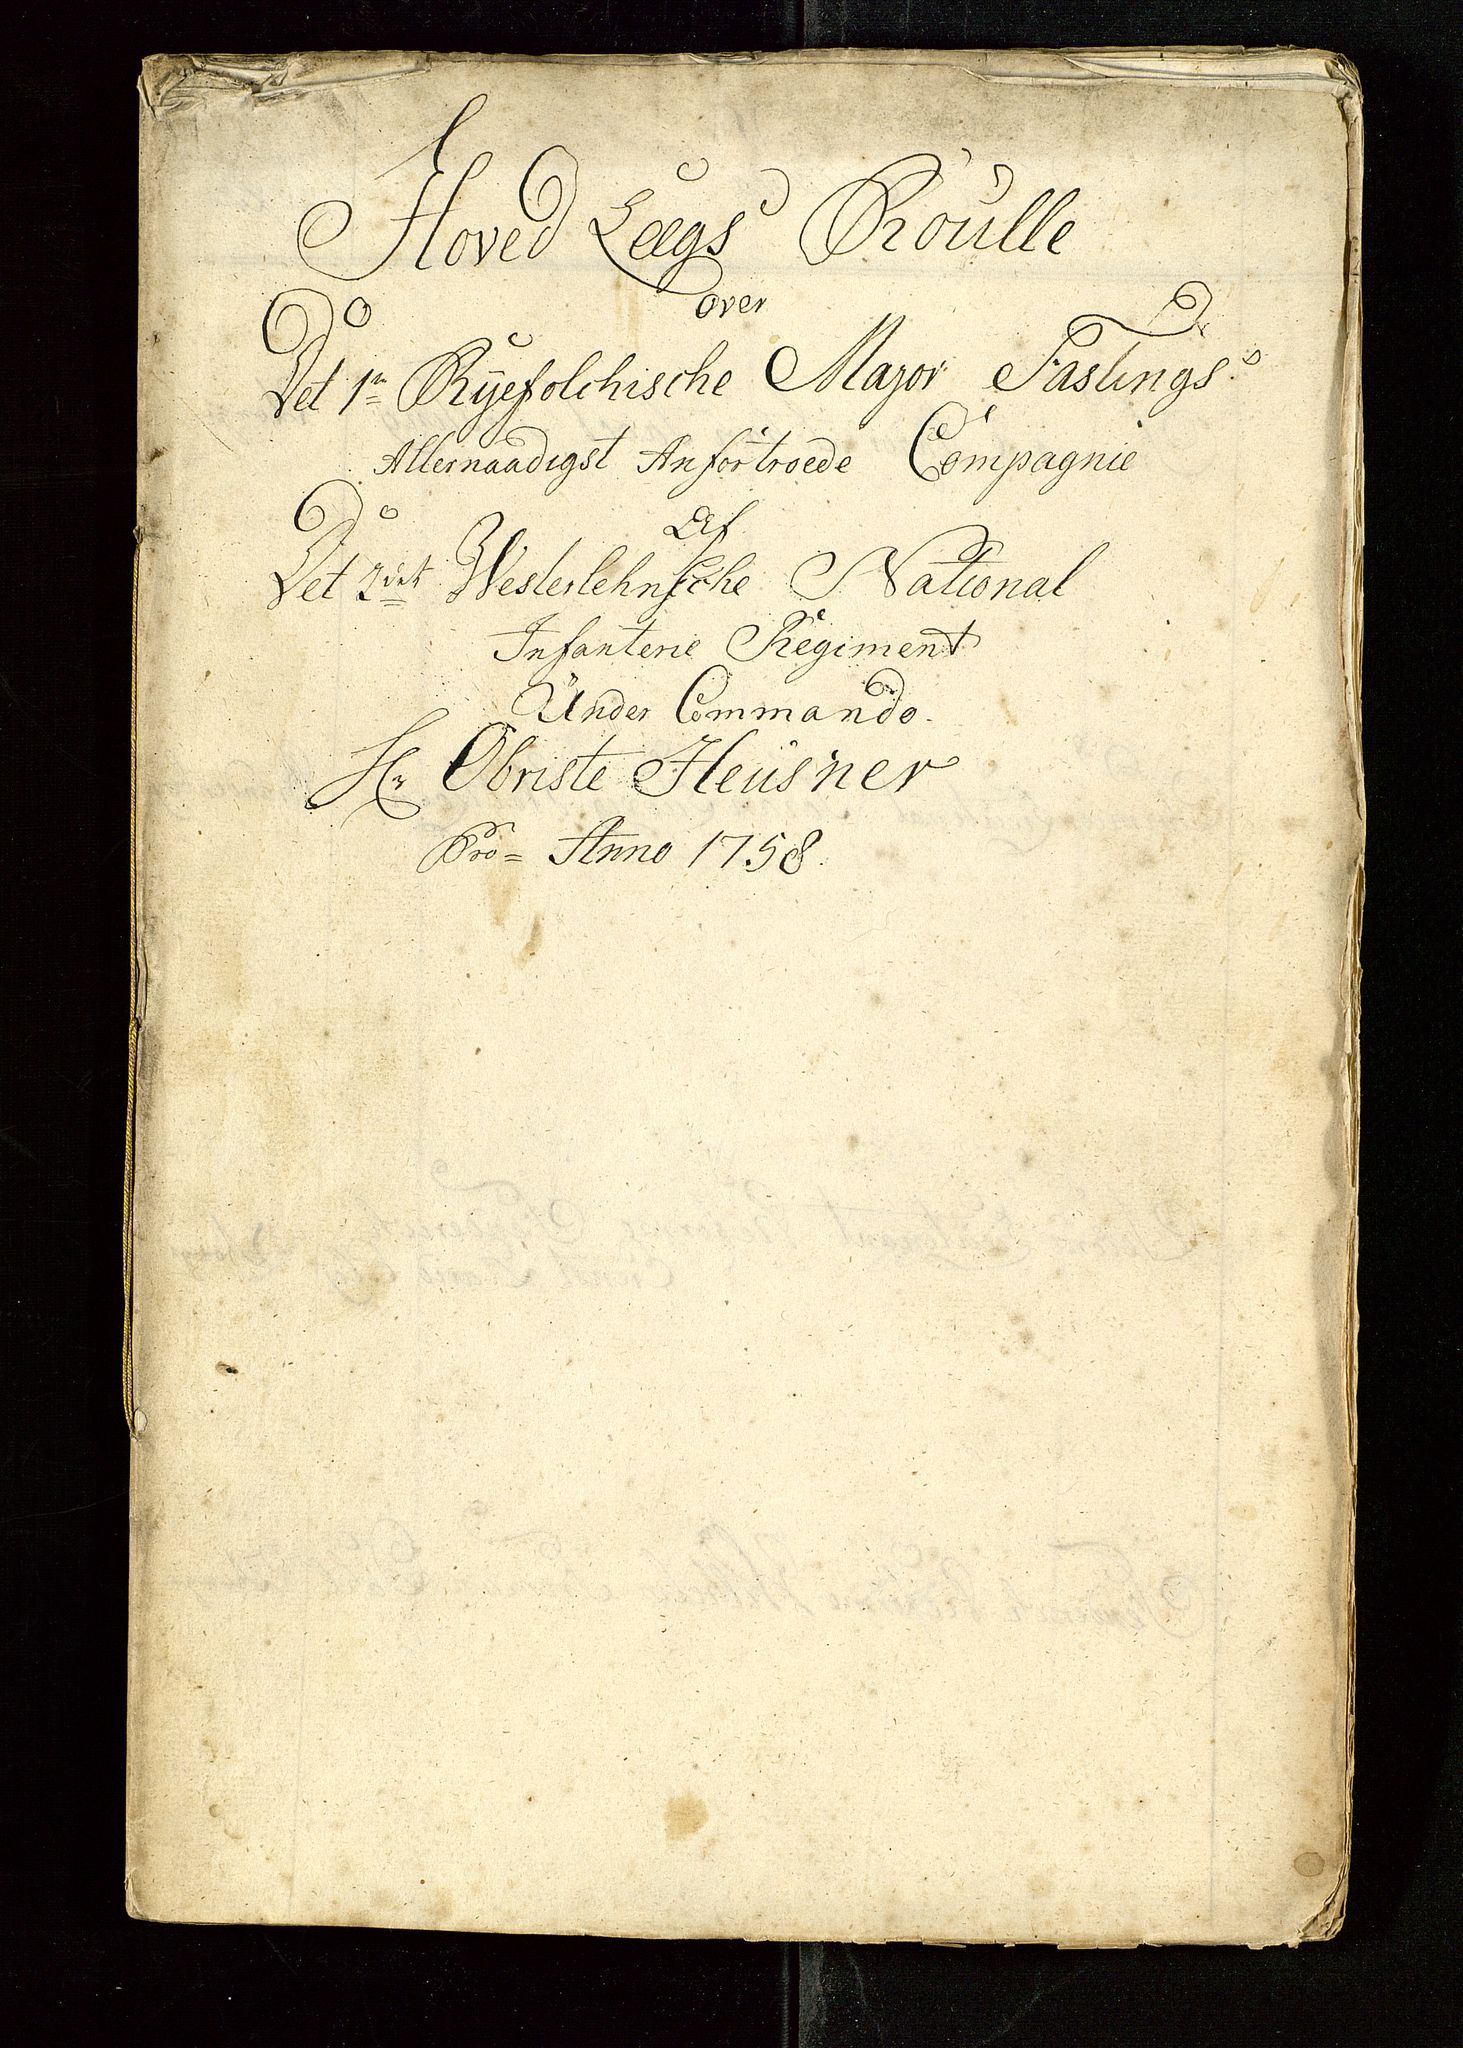 Hoved Lægs Roulle
over
Det 1te Ryefolchische Major Fastings
Allernaadigst Anfortroede Compagnie
Af
Det 2det Westerlehnsche National
Infanterie Regiment
Under Commando
Hr Obriste Heusner
Pro= Anno 1758.